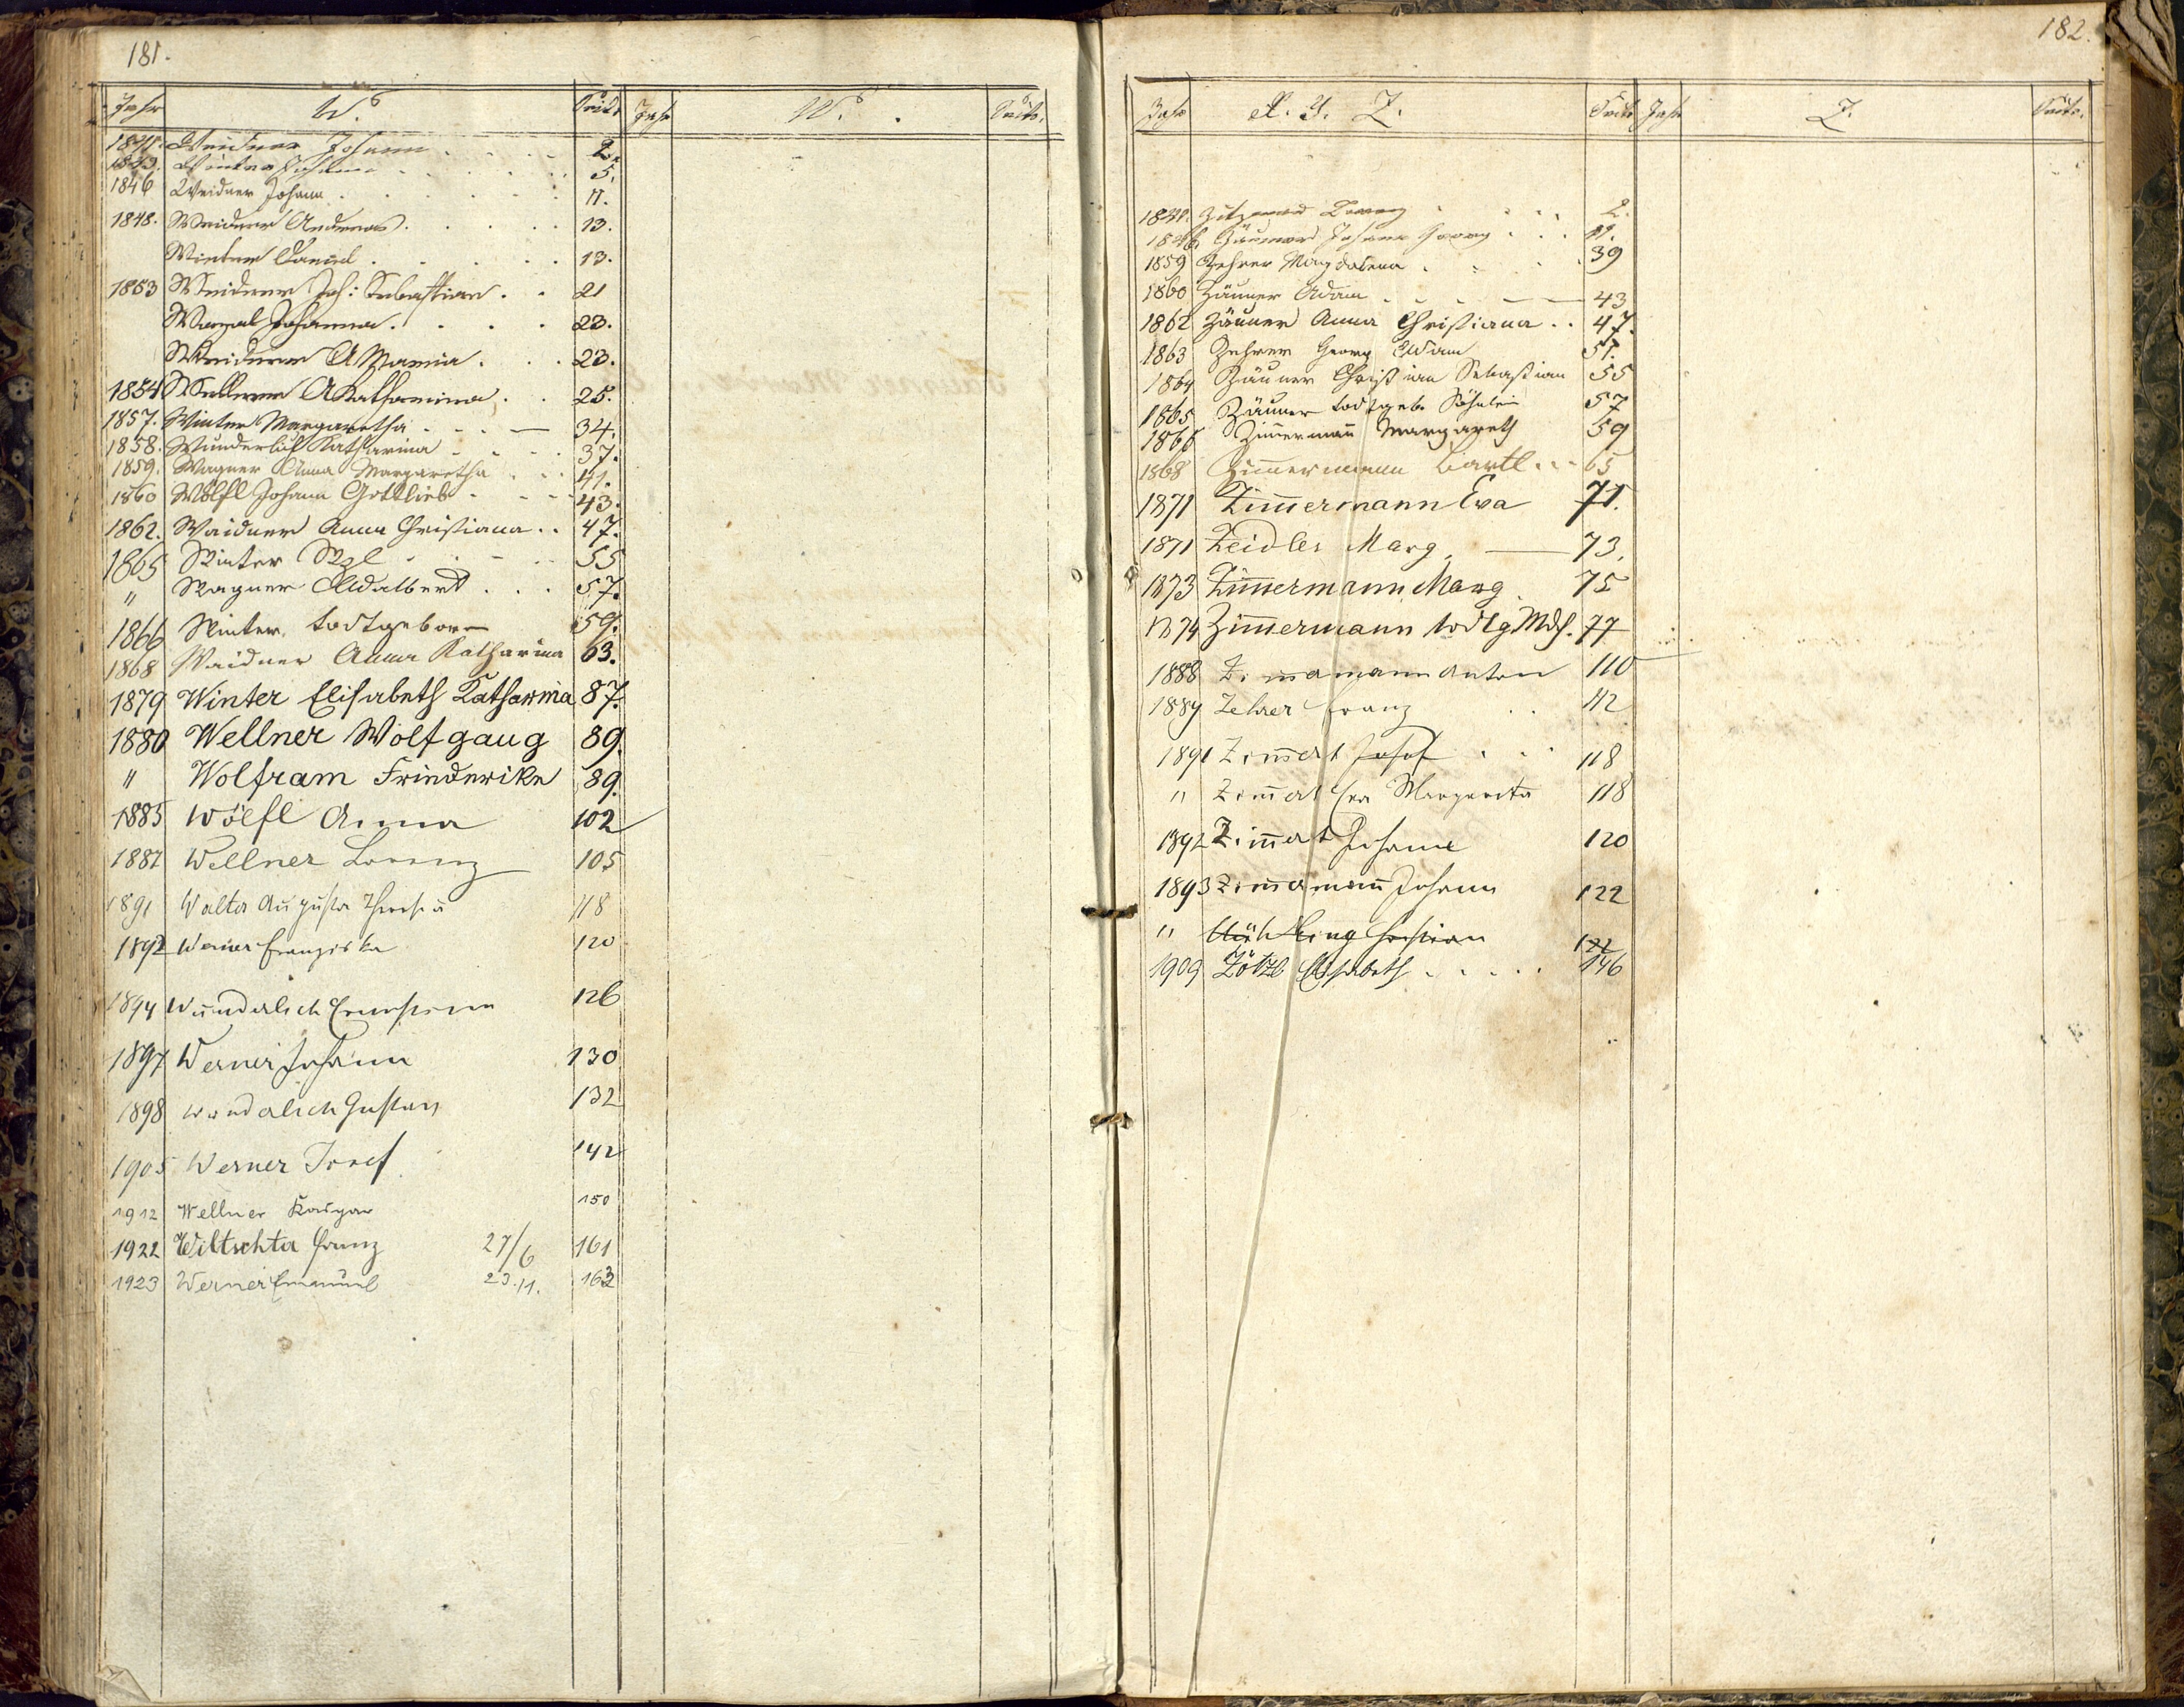 181.
Jahr W. Seite Jahr W. Seite.
1841. Weidner Johann . . . . 2.
1843. Winter Johann . . . . 5.
1846 Weidner Johann . . . . 11.
1848. Weidner Andreas . . . . 13.
Winter Daniel . . . . 13.
1853 Weidner Joh: Sebastian . . 21
Johanna . . . . 23.
Weidner A Maria . . . 23.
1854 Wellner A Katharina . . 25.
1857. Winter Margaretha . . . — 34.
1858. Wunderlich Katharina . . . . 37.
1859. Wagner Anna Margaretha . . . 41.
1860 Wölfl Johann Gottlieb . . . 43.
1862. Waidner Anna Christiana . . 47.
1865 Winter . . . 55
" Wagner Adalbert . . . 57.
1866 Winter, todtgeboren 59.
1868 Waidner Anna Katharina 63.
1879 Winter Elisabeth Katharina 87.
1880 Wellner Wolfgang 89.
" Wolfram Friederike 89.
1885 Wölfl Anna 102
1887 Wellner Lorenz 105
1891 Walter Augusta Theresia 118
1892 Werner Franziska 120
1894 Wunderlich Ernestine 126
1897 Werner Johann 130
1898 Wunderlich Gustav 132
1905 Werner Josef 142
1912 Wellner Kaspar 150
1922 Wiltschta Franz 27/6 161
1923 Werner Emanuel 23.11. 163
182.
Jahr X. Y. Z. Seite Jahr Z. Seite.
1841. . . . 2.
1846. Zäuner Johann Georg . . . 11.
1859 Zehrer Magdalena . . . 39
1860 Zäuner Adam . . . — 43
1862 Zäuner Anna Christiana . . 47.
1863 Zehrer Georg Adam 51.
1864 Zäuner Christian Sebastian 55
1865 Zäuner todtgeb. Söhnlein 57
1866 Zim̄erman̄ Margareth 59
1868 Zim̄ermann Bartl . . . 65
1871 Zim̄ermann Eva 71.
1871 Zeidler Marg. — 73.
1873 Zim̄ermann Marg. 75
1874 Zim̄ermann todtg Mdch. 77
1888 Zimmermann Anton 110
1889 Zehrer Franz . . 112
1891 Zim̄ert Josef . . . 118
" Zim̄ert Eva Margareta 118
1892 Zim̄ert Johann 120
1893 Zim̄erman̄ Johann 122
" 122
1909 Zötzl Elisabeth . . . . . 146